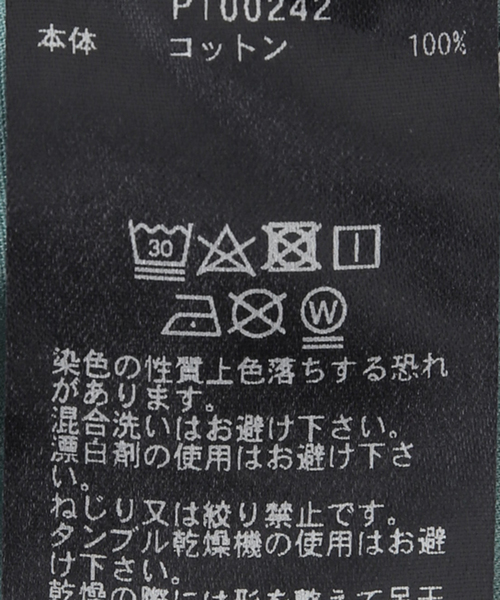 PT00242
本体 コットン 100%
30
W
染色の性質上色落ちする恐れ
があります。
混合洗いはお避け下さい。
漂白剤の使用はお避け下さ
い。
ねじり又は絞り禁止です。
タンブル乾燥機の使用はお避
け下さい。
乾燥の際には形を整えて